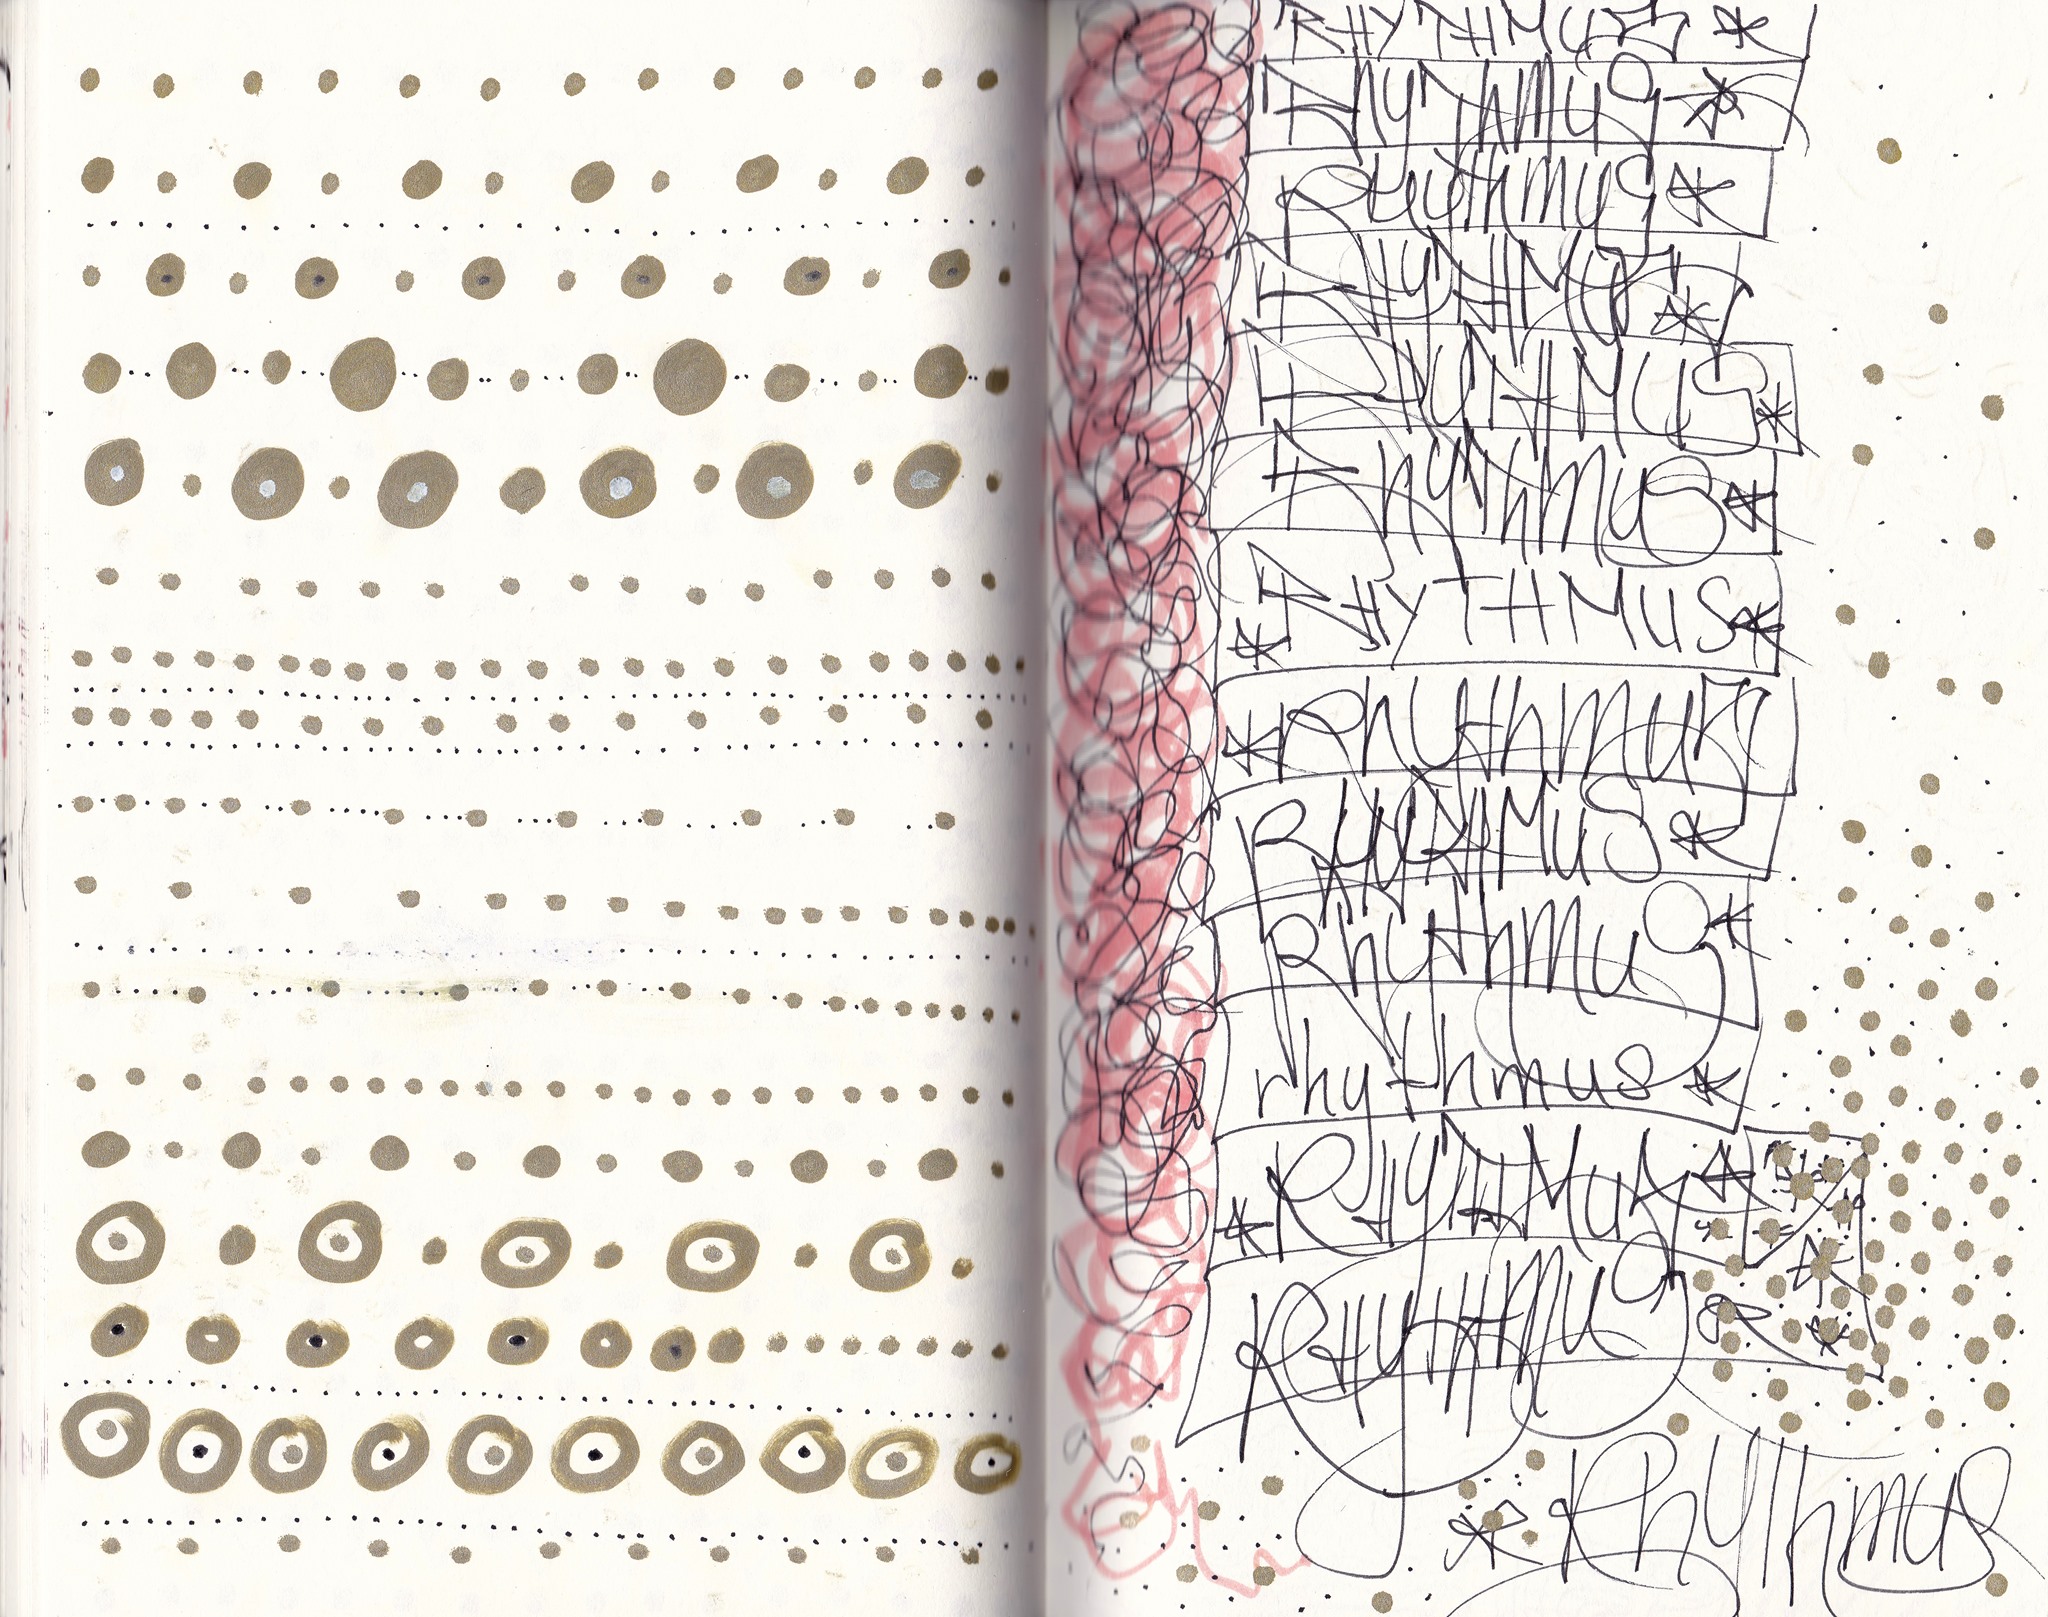 RHYTHMUS
RhyThmug
Rhythmus
RHYTHMUS
RHYTHMUS
RhyThmus
RHYTHMUS
Rhythmus
RHYTHMUS
Rhythmus
rhythmus
RHYTHMUS
RHYTHMUS
RhyThmus